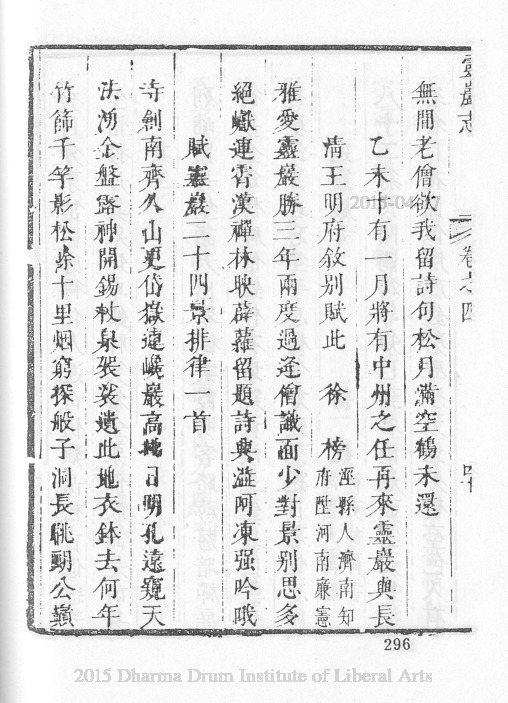 靈巖志 卷之四
無聞老僧欲我留詩句松月滿空鶴未還
乙未十有一月將有中州之任再來靈巖與長
清王明府敘別賦此 徐榜 涇縣人濟南知
府陞河南廉憲
雅愛靈巖勝三年兩度過逢僧識面少對景別思多
絕巘連霄漢禪林映薜蘿留題詩興溢呵凍强吟哦
賦靈巖二十四景排律一首
寺創南齊久山更岱嶽連巉巖高掩日明孔遠窺天
法湧金盤露神開錫杖泉袈裟遺此地衣鉢去何年
竹篩千竿影松滌十里烟窮探般子洞長眺朗公巔
296
2015 Dharma Drum Institute of Liberal Arts